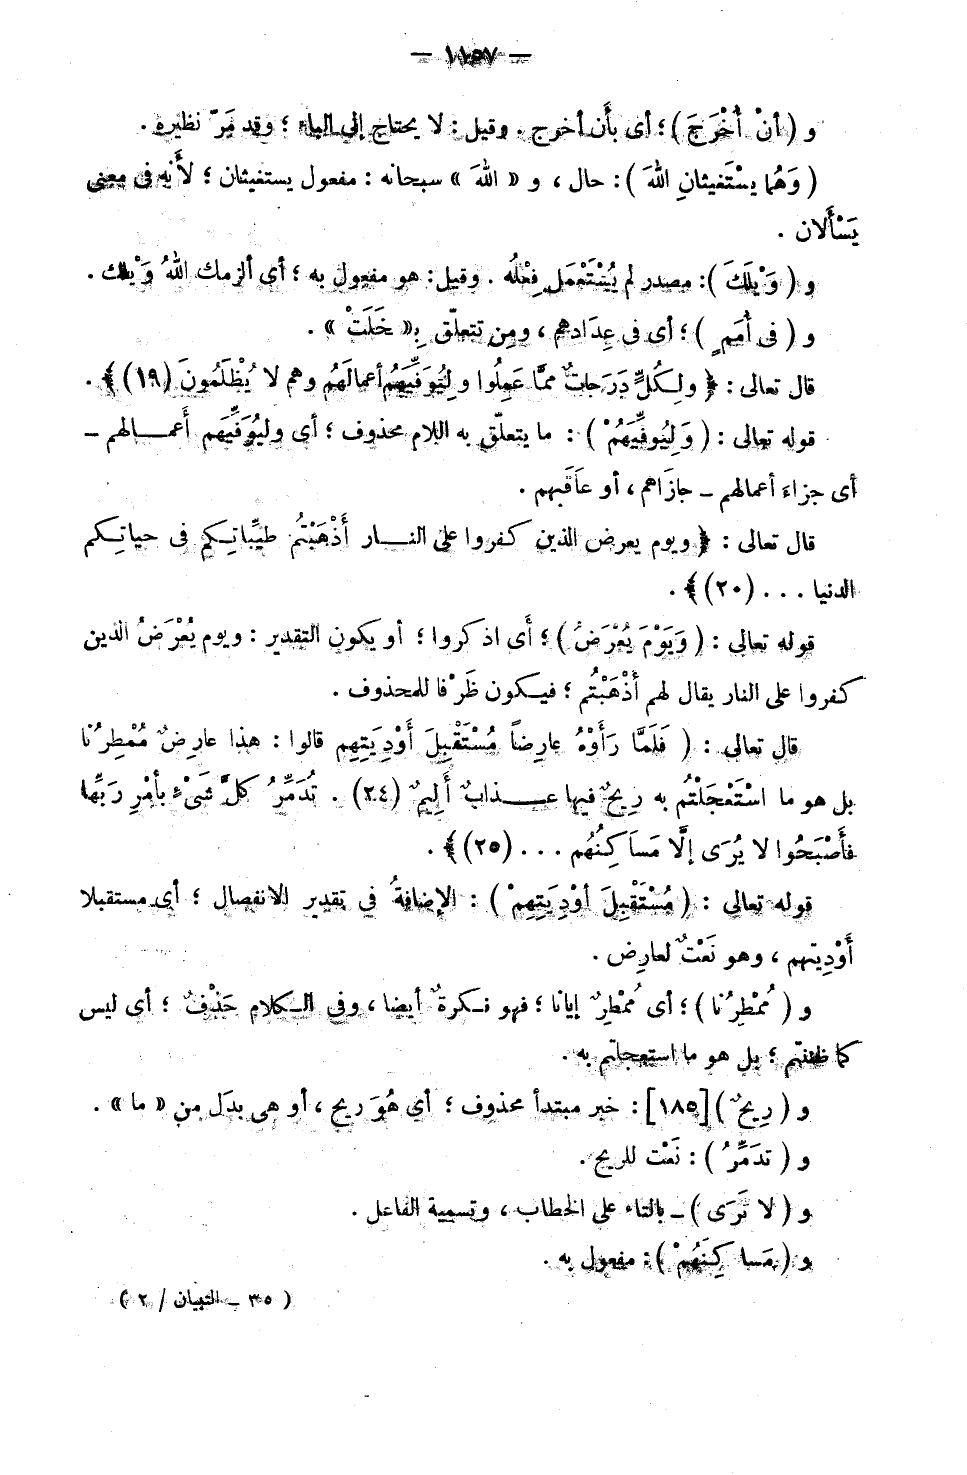 — ١١٥٧ —
و ( أنْ أُخْرَجَ ) ؛ أى بأَن أخرج . وقيل : لا يحتاج إلى الباء ؛ وقد مَرّ نظيره .
( وَهُما يسْتَغيثانِ اللهَ ) : حال ، و « اللهَ » سبحانه : مفعول يستغيثان ؛ لأَنه فى معنى
يَسْأَلان .
و ( وَيْلَكَ ) : مصدر لم يُسْتَعْمَل فِعْلُه . وقيل : هو مفعول به ؛ أى ألزمك اللهُ وَيْلك .
و ( فى أُمَمٍ ) ؛ أى فى عِدَادهم ، ومن تتعلّق بـ « خَلَتْ » .
قال تعالى : ﴿ ولِكُلٍّ دَرَجاتٌ ممَّا عَمِلُوا ولِيُوَفِّيَهُم أعمالَهُم وهم لا يُظْلَمُونَ (١٩) ﴾ .
قوله تعالى : ( وَلِيُوفِّيَهُمْ ) : ما يتعلّق به اللام محذوف ؛ أى وليُوَفِّيَهم أَعمـالهم –
أى جزاءَ أعمالهم – جازَاهم ، أو عَاقَبهم .
قال تعالى : ﴿ ويوم يعرض الذين كفروا على النـار أَذْهَبْتُم طيِّباتكم فى حياتكم
الدنيا . . . (٢٠) ﴾ .
قوله تعالى : ( وَيَوْمَ يُعْرَضُ ) ؛ أَى اذكروا ؛ أو يكون التقدير : ويوم يُعْرَضُ الذين
كفروا على النار يقال لهم أَذْهَبْتُم ؛ فيكون ظَرْفا للمحذوف .
قال تعالى : ( فَلَمَّا رَأَوْهُ عارِضاً مُسْتَقْبِلَ أَوْدِيَتِهِم قالوا : هذا عارِضٌ مُمْطِرُنا
بل هو ما اسْتَعْجَلْتُم به رِيحٌ فيها عـذابٌ أَلِيمٌ (٢٤) . تُدَمِّرُ كلَّ شَىْءٍ بأَمْرِ رَبِّها
فأَصْبَحُوا لا يُرَى إلَّا مَسَاكِنُهُم . . . (٢٥) ﴾ .
قوله تعالى : ( مُسْتَقْبِلَ أَوْدِيَتِهِمْ ) : الإضافةُ فى تقدير الانفصال ؛ أى مستقبلا
أَوْدِيتهم ، وهو نَعْتٌ لعارِض .
و ( مُمْطِرُنا ) ؛ أى مُمْطِرٌ إيانا ؛ فهو نكرةٌ أيضا ، وفى الكلام حَذْفٌ ؛ أى ليس
كما ظننتم ؛ بل هو ما استعجلتم به .
و ( رِيحٌ ) [١٨٥] : خبر مبتدأ محذوف ؛ أي هُوَ ريح ، أو هى بدَل من « ما » .
و ( تدَمِّرُ ) : نَعْت للريح .
و ( لا تَرَى ) – بالتاء على الخطاب ، وتسمية الفاعل .
و ( مَسا كِنَهُمْ ) : مفعول به .
( ٣٥ – التبيان / ٢ )